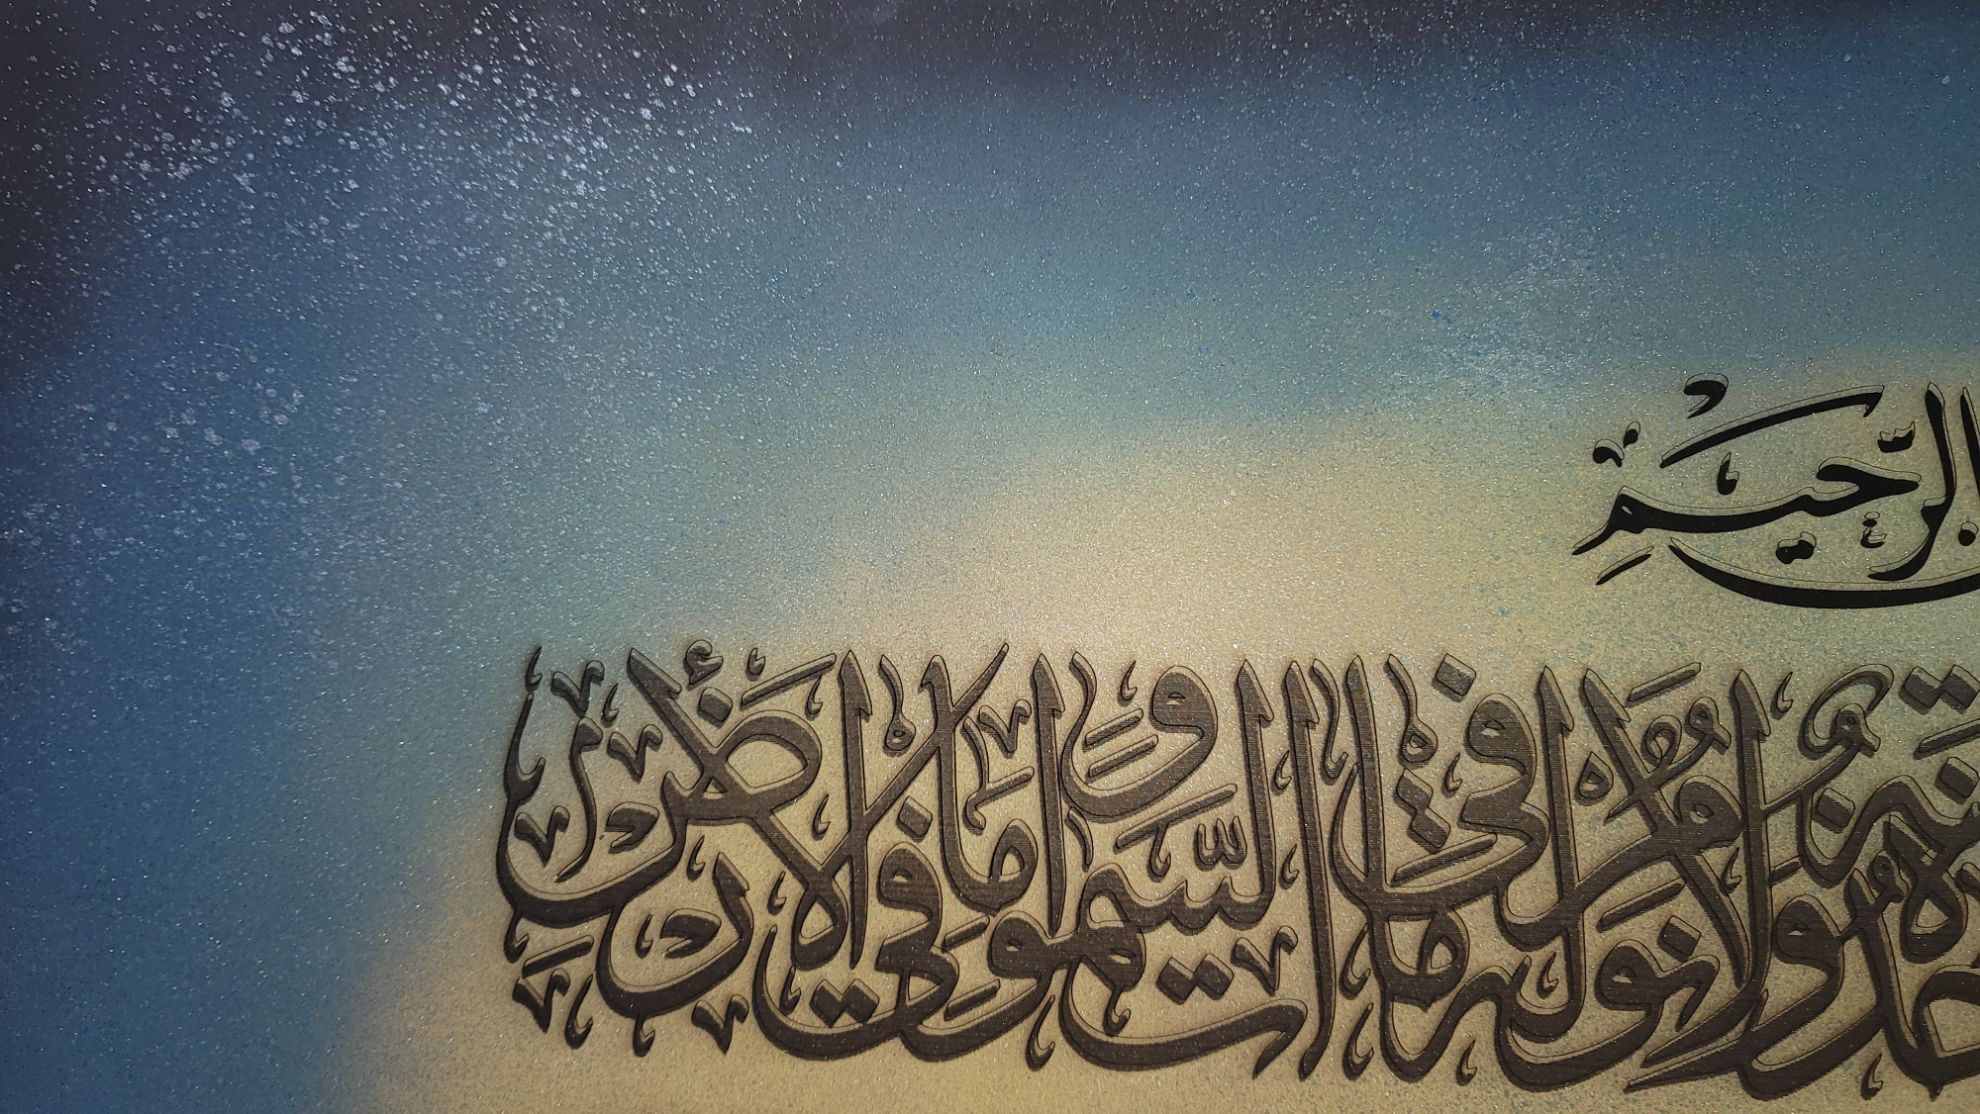 الرحيم
تأخذه سنة ولا نوم له ما في السموات وما في الأرض